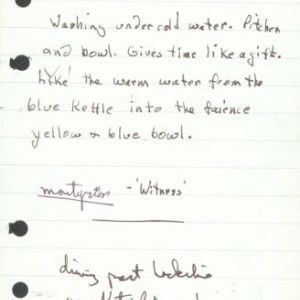 Washing under cold water. Pitcher
and bowl. Gives time like a gift.
Like the warm water from the
blue kettle into the faience
yellow & blue bowl.
martyrion - 'Witness'
driving past